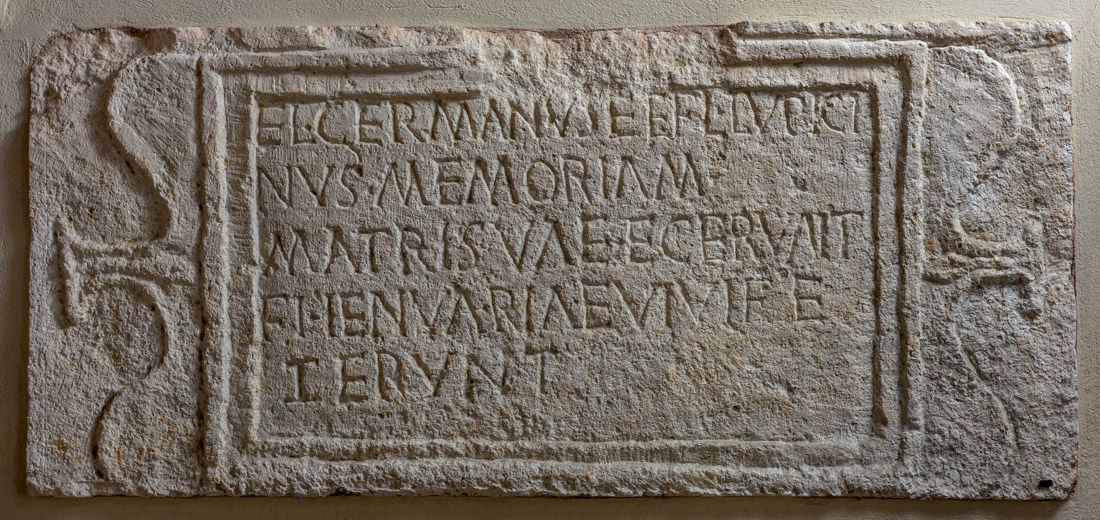 FL·GERMANVS ET FL LVPICI
NVS·MEMORIAM
MATRIS VAE FECERVNT
FL·IENVARIAE VIVI FE
CERVNT